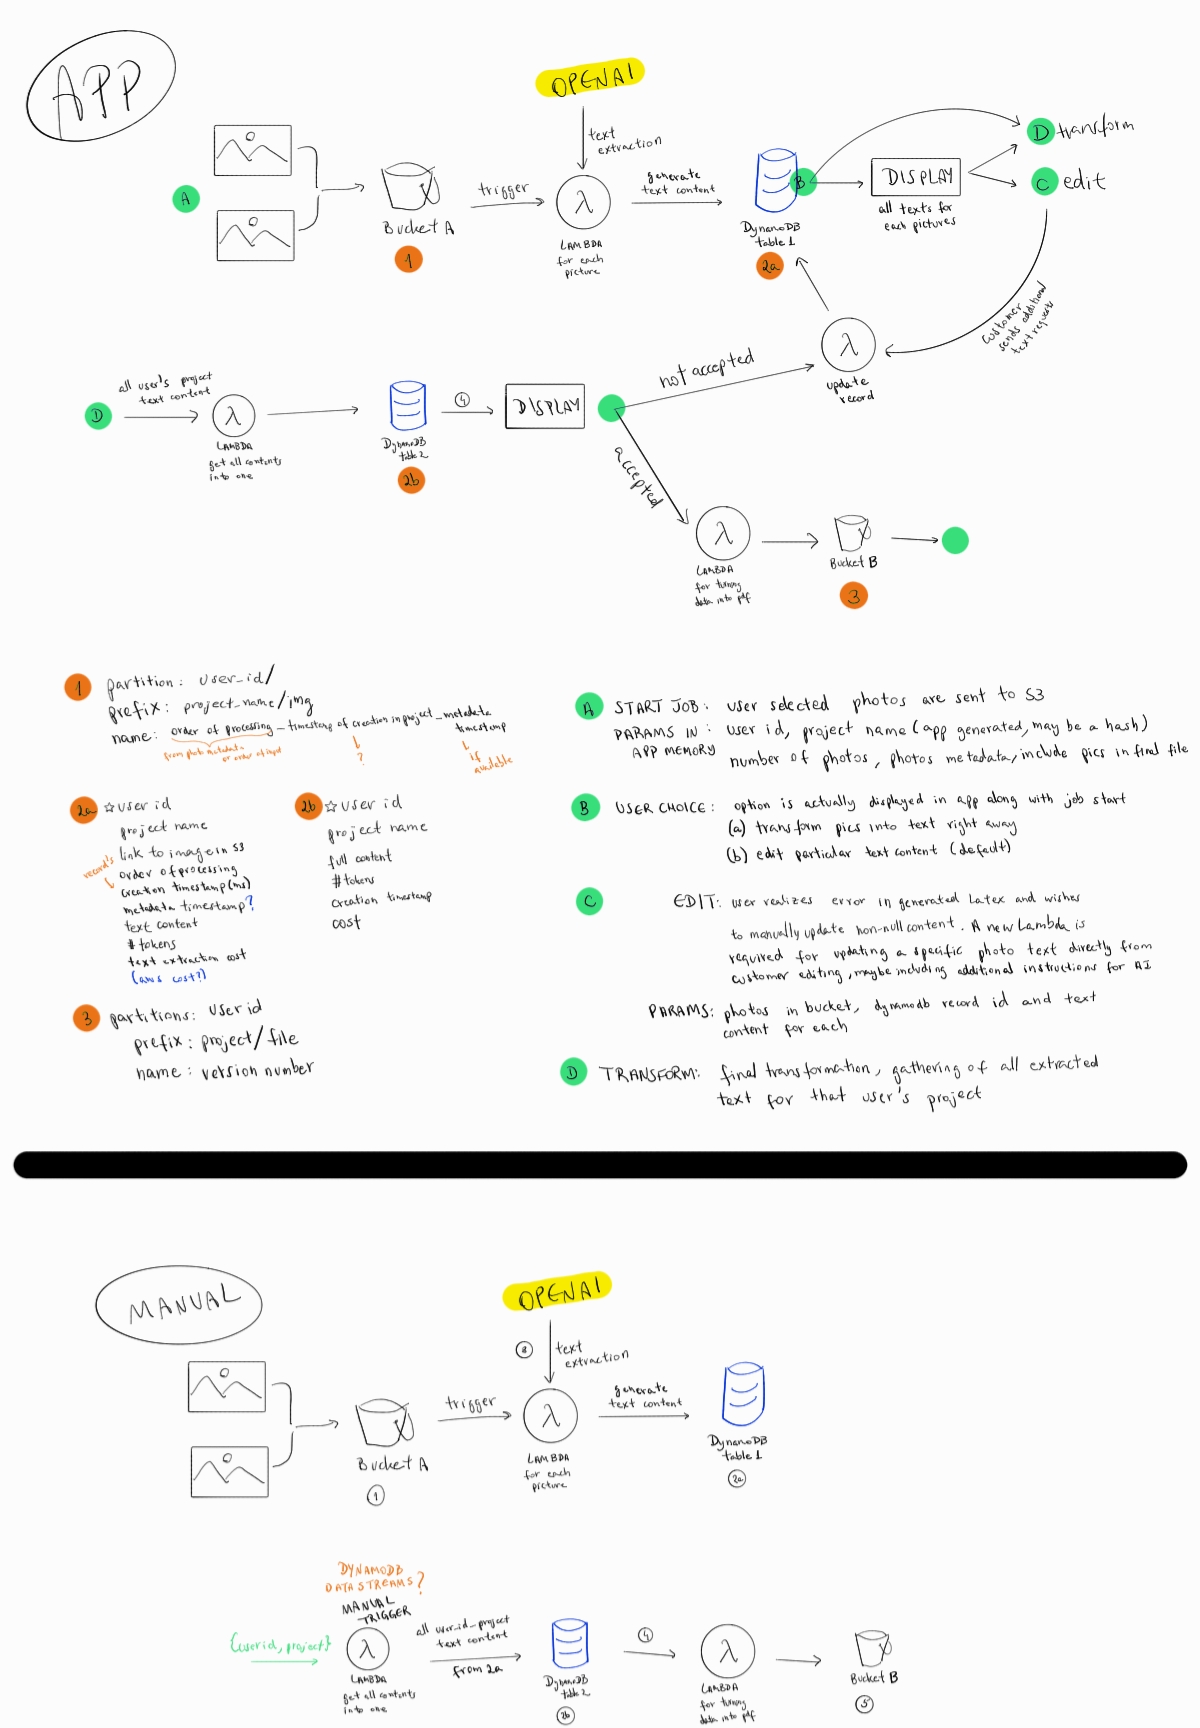 APP
OPENAI
text
extraction
A
Bucket A
1
trigger
λ
LAMBDA
for each
picture
generate
text content
DynamoDB
table 1
2a
B
DISPLAY
all texts for
each pictures
D transform
C edit
customer
sends additional
text requests
λ
update
record
D
all user's project
text content
λ
LAMBDA
get all contents
into one
DynamoDB
table 2
2b
4
DISPLAY
not accepted
accepted
λ
LAMBDA
for turning
data into pdf
Bucket B
3
1 partition: user_id/
prefix: project_name/img
name: order of processing - timestamp of creation in project_metadata
timestamp
from photo metadata
or order of input
?
if
available
2a ☆ user id
project name
link to image in S3
order of processing
record's
creation timestamp (ms)
metadata timestamp?
text content
# tokens
text extraction cost
(aws cost?)
2b ☆ user id
project name
full content
# tokens
creation timestamp
cost
3 partitions: user id
prefix: project/file
name: version number
A START JOB: user selected photos are sent to S3
PARAMS IN APP MEMORY: user id, project name (app generated, may be a hash)
number of photos, photos metadata, include pics in final file
B USER CHOICE: option is actually displayed in app along with job start
(a) transform pics into text right away
(b) edit particular text content (default)
C EDIT: user realizes error in generated Latex and wishes
to manually update non-null content. A new Lambda is
required for updating a specific photo text directly from
customer editing, maybe including additional instructions for AI
PARAMS: photos in bucket, dynamodb record id and text
content for each
D TRANSFORM: final transformation, gathering of all extracted
text for that user's project
MANUAL
OPENAI
text
extraction
Bucket A
1
trigger
λ
LAMBDA
for each
picture
generate
text content
DynamoDB
table 1
2a
DYNAMODB
DATA STREAMS?
MANUAL
TRIGGER
{userid, project}
λ
LAMBDA
get all contents
into one
all user_id_project
text content
from 2a
DynamoDB
table 2
2b
4
λ
LAMBDA
for turning
data into pdf
Bucket B
5